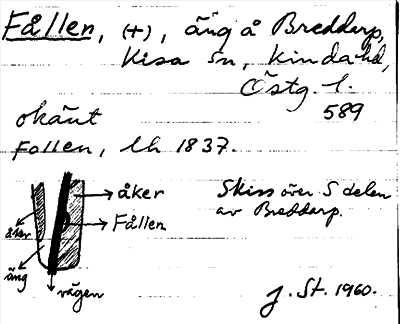 Fållen, (+), äng å Breddarp,
Kisa sn, Kinda hd,
Östg. l.
589
okänt
Follen, lh 1837.
åker
Fållen
åker
äng
vägen
Skiss över S delen
av Breddarp.
J. St. 1960.